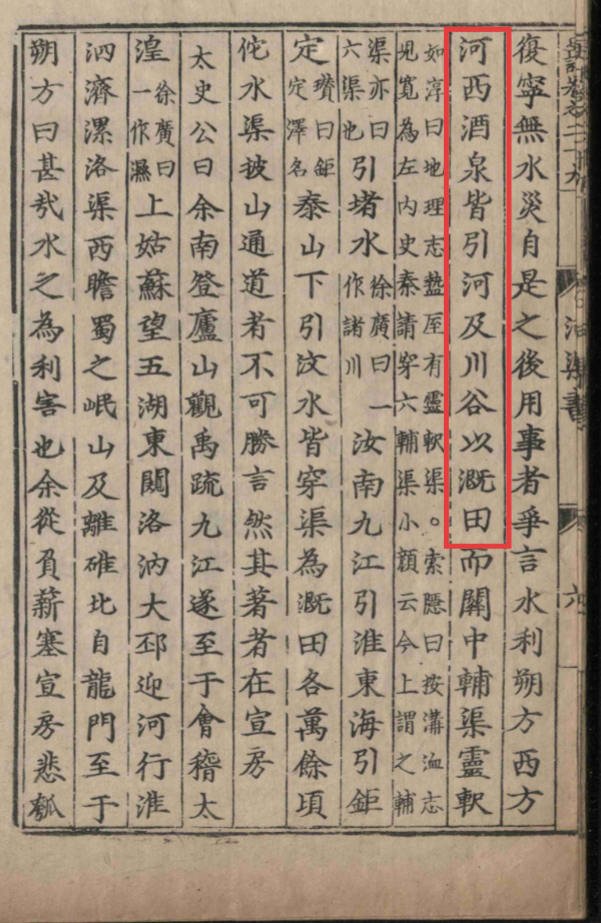 河渠書
六
復寧無水災自是之後用事者爭言水利朔方西方
河西酒泉皆引河及川谷以溉田而關中輔渠靈軹
如淳曰地理志盩厔有靈軹渠。索隱曰按溝洫志
兒寬為左內史奏請穿六輔渠小顏云今上謂之輔
渠亦曰六渠也引堵水徐廣曰一作諸川汝南九江引淮東海引鉅
定瓚曰鉅定澤名泰山下引汶水皆穿渠為溉田各萬餘頃
佗水渠披山通道者不可勝言然其著者在宣房
太史公曰余南登廬山觀禹疏九江遂至于會稽太
湟徐廣曰一作濕上姑蘇望五湖東闚洛汭大邳迎河行淮
泗濟漯洛渠西瞻蜀之岷山及離碓北自龍門至于
朔方曰甚哉水之為利害也余從負薪塞宣房悲瓠